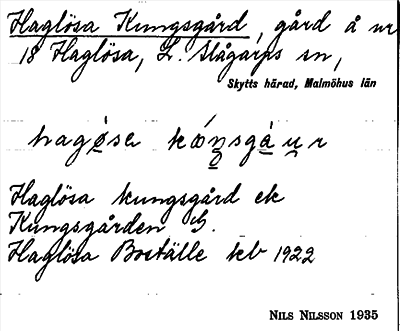 Haglösa Kungsgård, gård å nr
18 Haglösa, L. Slågarps sn,
Skytts härad, Malmöhus län
hagø̱sa kǿṉsgá̱ u̱r
Haglösa kungsgård ek
Kungsgården G.
Haglösa Boställe kb 1922
NILS NILSSON 1935